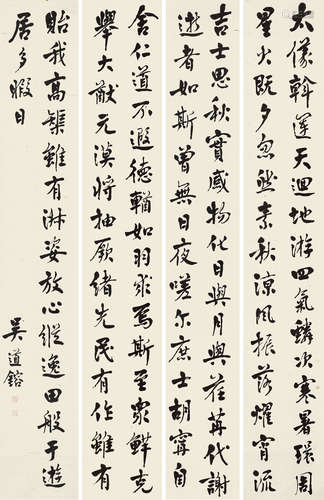 太儀斡運天迴地游四氣鱗次寒暑環周
星火既夕忽然素秋涼風振落燿宵流
吉士思秋實感物化日與月與荏苒代謝
逝者如斯曾無日夜嗟尔庶士胡寧自
舍仁道不遐德輶如羽求焉斯至眾鮮克
舉大猷元漠將抽厥緒先民有作雖有
貽我高榘雖有淋姿放心縱逸田般于遊
居多暇日
吳道鎔